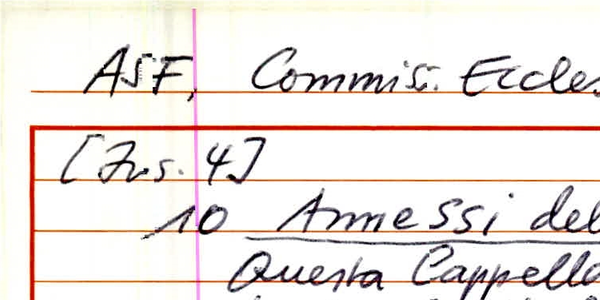 ASF, Commis. Eccles
[Ins. 4]
10 Annessi del
Questa Cappella